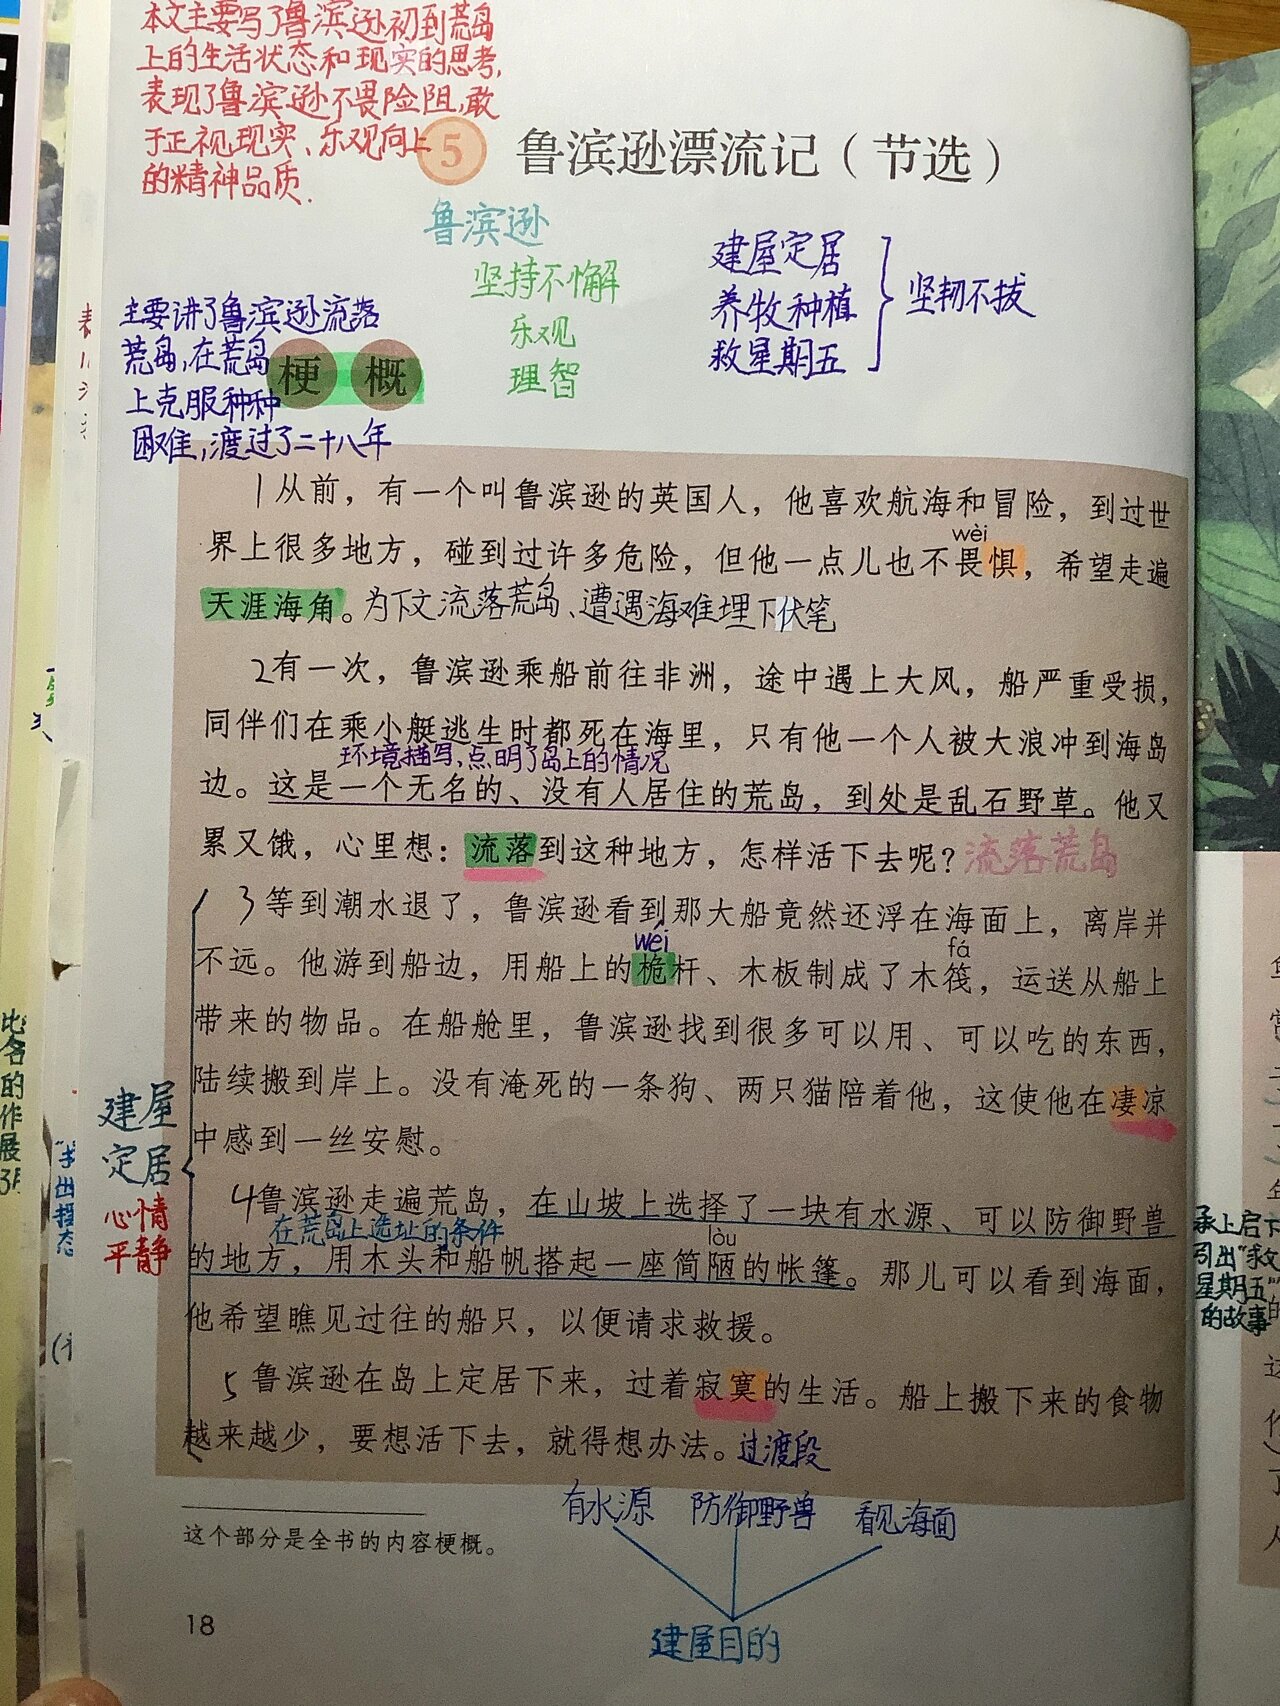 本文主要写了鲁滨逊初到荒岛
上的生活状态和现实的思考,
表现了鲁滨逊不畏险阻,敢
于正视现实、乐观向上
的精神品质.
5 鲁滨逊漂流记（节选）
鲁滨逊
坚持不懈
乐观
理智
建屋定居
养牧种植
救星期五
坚韧不拔
主要讲了鲁滨逊流落
荒岛,在荒岛
上克服种种
困难,渡过了二十八年
梗概
1从前，有一个叫鲁滨逊的英国人，他喜欢航海和冒险，到过世
wèi
界上很多地方，碰到过许多危险，但他一点儿也不畏惧，希望走遍
天涯海角。为下文流落荒岛、遭遇海难埋下伏笔
2有一次，鲁滨逊乘船前往非洲，途中遇上大风，船严重受损，
同伴们在乘小艇逃生时都死在海里，只有他一个人被大浪冲到海岛
环境描写,点明了岛上的情况
边。这是一个无名的、没有人居住的荒岛，到处是乱石野草。他又
累又饿，心里想：流落到这种地方，怎样活下去呢？流落荒岛
3等到潮水退了，鲁滨逊看到那大船竟然还浮在海面上，离岸并
wéi fá
不远。他游到船边，用船上的桅杆、木板制成了木筏，运送从船上
带来的物品。在船舱里，鲁滨逊找到很多可以用、可以吃的东西，
陆续搬到岸上。没有淹死的一条狗、两只猫陪着他，这使他在凄凉
中感到一丝安慰。
建屋
定居
心情
平静
4鲁滨逊走遍荒岛，在山坡上选择了一块有水源、可以防御野兽
在荒岛上选址的条件
lòu
的地方，用木头和船帆搭起一座简陋的帐篷。那儿可以看到海面，
他希望瞧见过往的船只，以便请求救援。
5鲁滨逊在岛上定居下来，过着寂寞的生活。船上搬下来的食物
越来越少，要想活下去，就得想办法。过渡段
有水源 防御野兽 看见海面
建屋目的
这个部分是全书的内容梗概。
18
承上启下
引出"救
星期五"
的故事